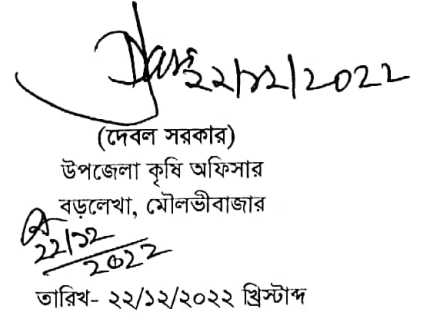 22/12/2022
(দেবল সরকার)
উপজেলা কৃষি অফিসার
বড়লেখা, মৌলভীবাজার
22/12
2022
তারিখ- ২২/১২/২০২২ খ্রিস্টাব্দ